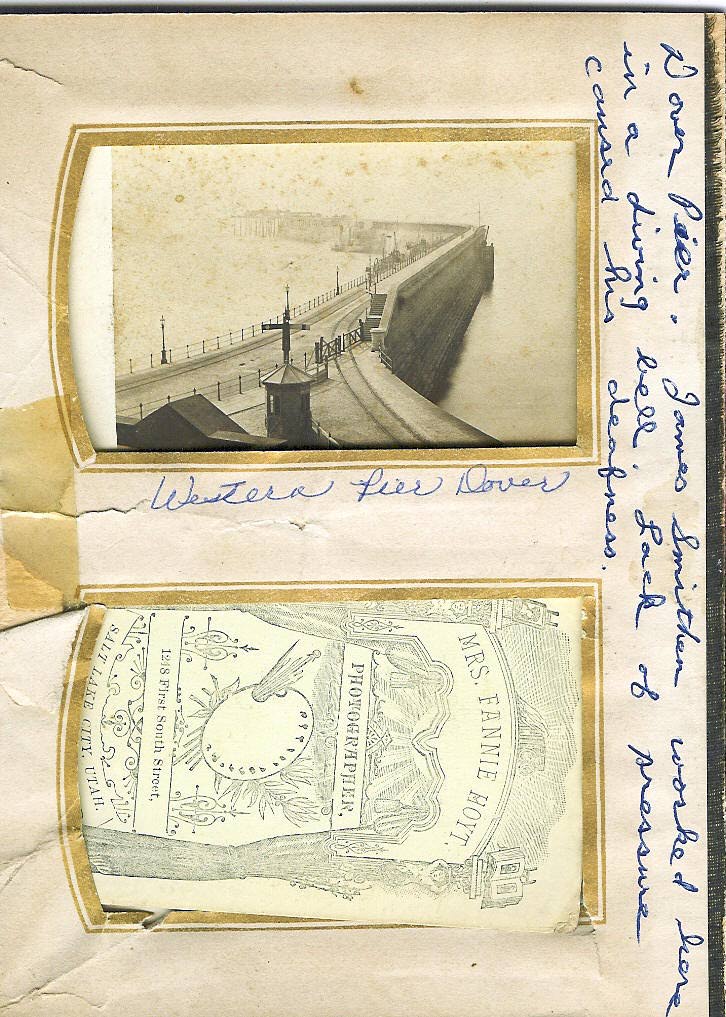 Dover Pier. James Smithen worked here
in a diving bell. Lack of pressure
caused his deafness.
Western Pier Dover
MRS. FANNIE HOYT.
PHOTOGRAPHER,
1248 First South Street,
SALT LAKE CITY, UTAH.